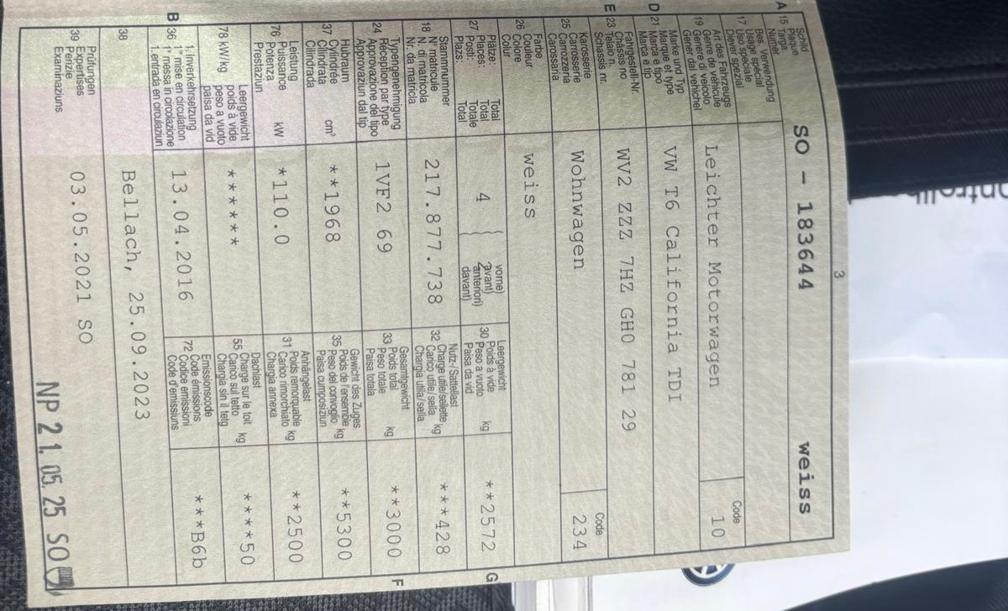 3
A 15 Schild
Plaque
Targa
Numer
SO - 183644 weiss
17 Bes. Verwendung
Usage spécial
Uso speciale
Diever spezial
19 Art des Fahrzeugs
Genre de véhicule
Genere di veicolo
Gener dal vehichel
Leichter Motorwagen
Code
10
D 21 Marke und Typ
Marque et type
Marca e tipo
Marca e tip
VW T6 California TDI
E 23 Fahrgestell-Nr.
Châssis no
Telaio n.
Schassis nr.
WV2 ZZZ 7HZ GH0 781 29
25 Karosserie
Carrosserie
Carrozzeria
Carossaria
Wohnwagen
Code
234
26 Farbe
Couleur
Colore
Colur
weiss
27 Plätze: Total
Places: Total
Posti: Totale
Plazs: Total
4
vorne)
avant)
anteriori)
davant)
30 Leergewicht
Poids à vide
Peso a vuoto
Paisa da vid
kg
**2572 G
18 Stammnummer
N. matricule
N. matricola
Nr. da matricla
217.877.738
32 Nutz-/Sattellast
Charge utile/sellette kg
Carico utile/sella
Chargia utila/sella
***428
24 Typengenehmigung
Réception par type
Approvazione del tipo
Approvaziun dal tip
1VF2 69
33 Gesamtgewicht
Poids total
Peso totale
Paisa totala
kg
**3000 F
37 Hubraum
Cylindrée
Cilindrata
Cilindrada
cm³
**1968
35 Gewicht des Zuges
Poids de l'ensemble kg
Peso del convoglio
Paisa cumposiziun
**5300
76 Leistung
Puissance
Potenza
Prestaziun
kW
*110.0
31 Anhängelast
Poids remorquable kg
Carico rimorchiato
Chargia annexa
**2500
78 kW/kg
Leergewicht
poids à vide
peso a vuoto
paisa da vid
******
55 Dachlast
Charge sur le toit kg
Carico sul tetto
Chargia sin il tetg
****50
B 36 1. Inverkehrsetzung
1re mise en circulation
1a messa in circolazione
1. entrada en circulaziun
13.04.2016
72 Emissionscode
Code émissions
Codice emissioni
Code d'emissiuns
***B6b
38
Bellach, 25.09.2023
39 Prüfungen
Expertises
Perizie
Examinaziuns
03.05.2021 SO
NP 21.05.25 SO